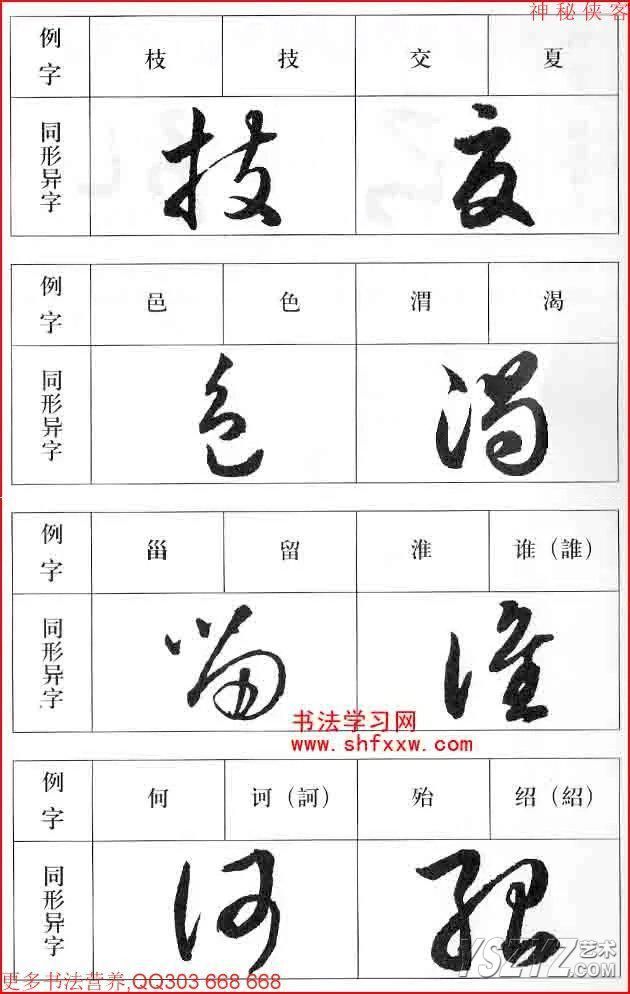 神秘侠客
例字 枝 技 交 夏
同形异字
例字 邑 色 渭 渴
同形异字
例字 甾 留 淮 谁（誰）
同形异字
书法学习网
www.shfxxw.com
例字 何 诃（訶） 殆 绍（紹）
同形异字
YSZYZ艺术
.com
更多书法营养,QQ303 668 668